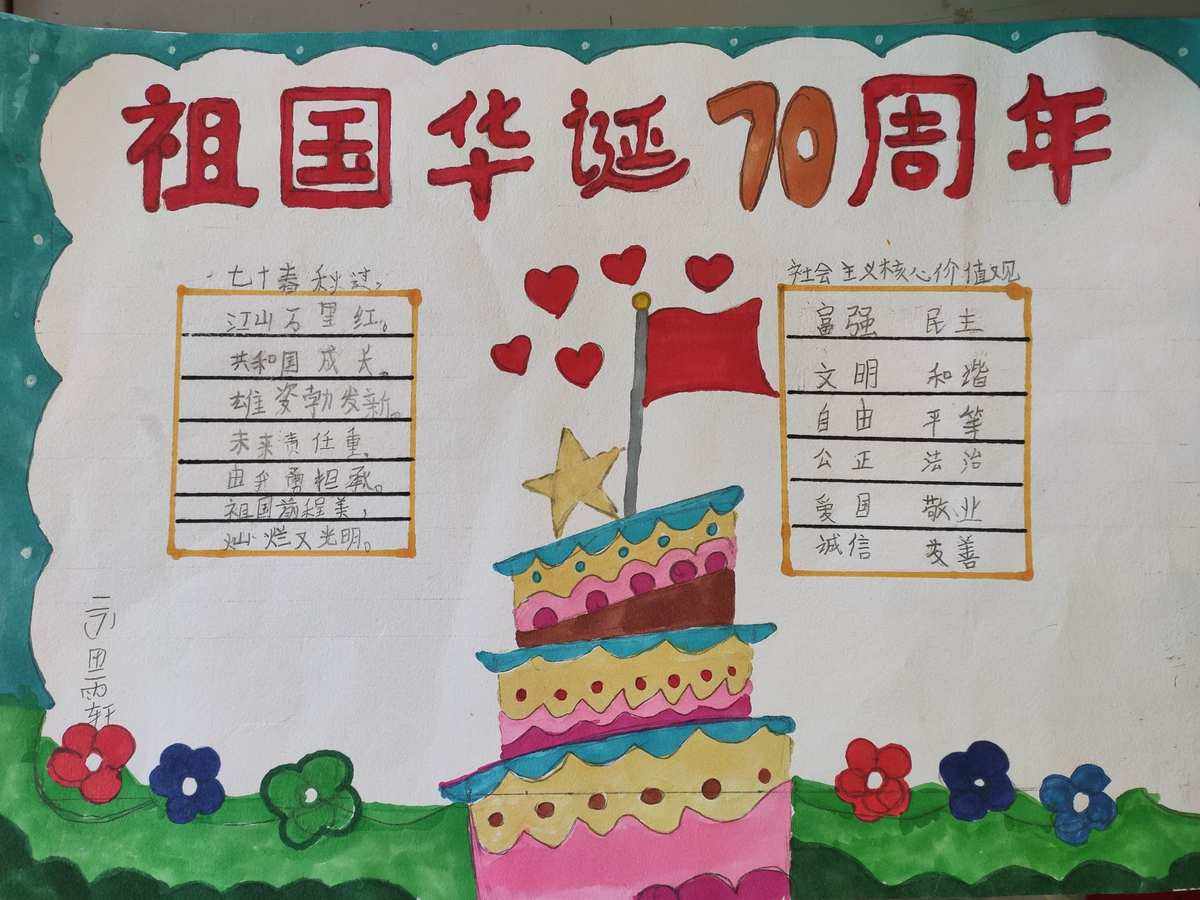 祖国华诞70周年
七十春秋过，
江山万里红。
共和国成长，
雄姿勃发新。
未来责任重，
由我勇担承。
祖国前程美，
灿烂又光明。
社会主义核心价值观
富强 民主
文明 和谐
自由 平等
公正 法治
爱国 敬业
诚信 友善
雨轩